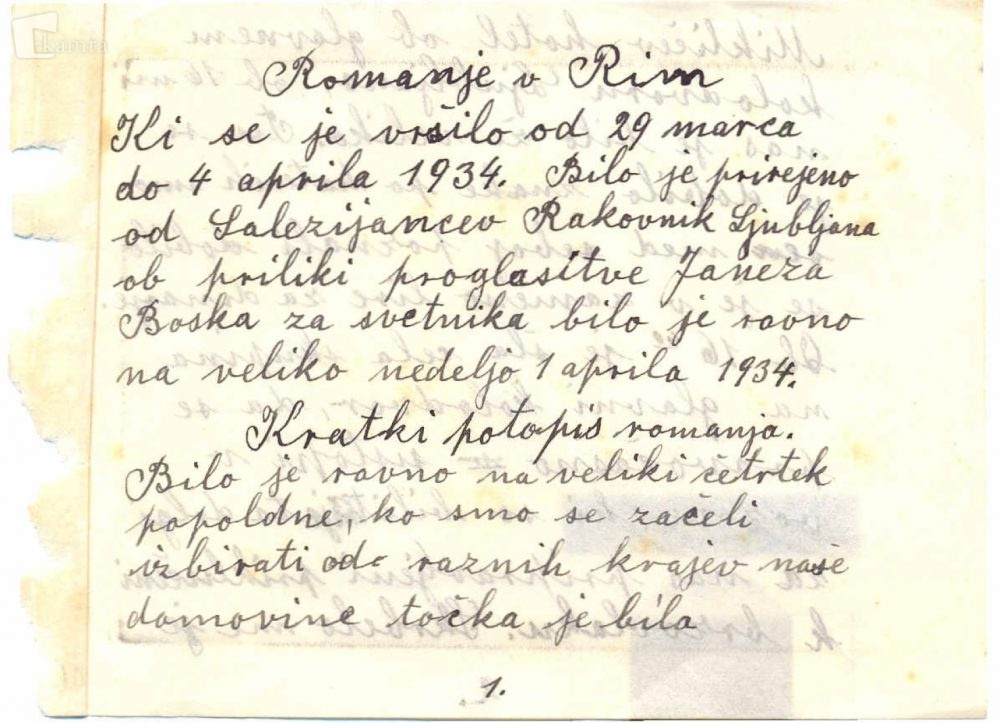 kamra
Romanje v Rim
Ki se je vršilo od 29 marca
do 4 aprila 1934. Bilo je prirejeno
od Salezijancev Rakovnik Ljubljana
ob priliki proglasitve Janeza
Boska za svetnika bilo je ravno
na veliko nedeljo 1 aprila 1934.
Kratki potopis romanja.
Bilo je ravno na veliki četrtek
popoldne, ko smo se začeli
izbirati od raznih krajev naše
domovine točka je bila
1.